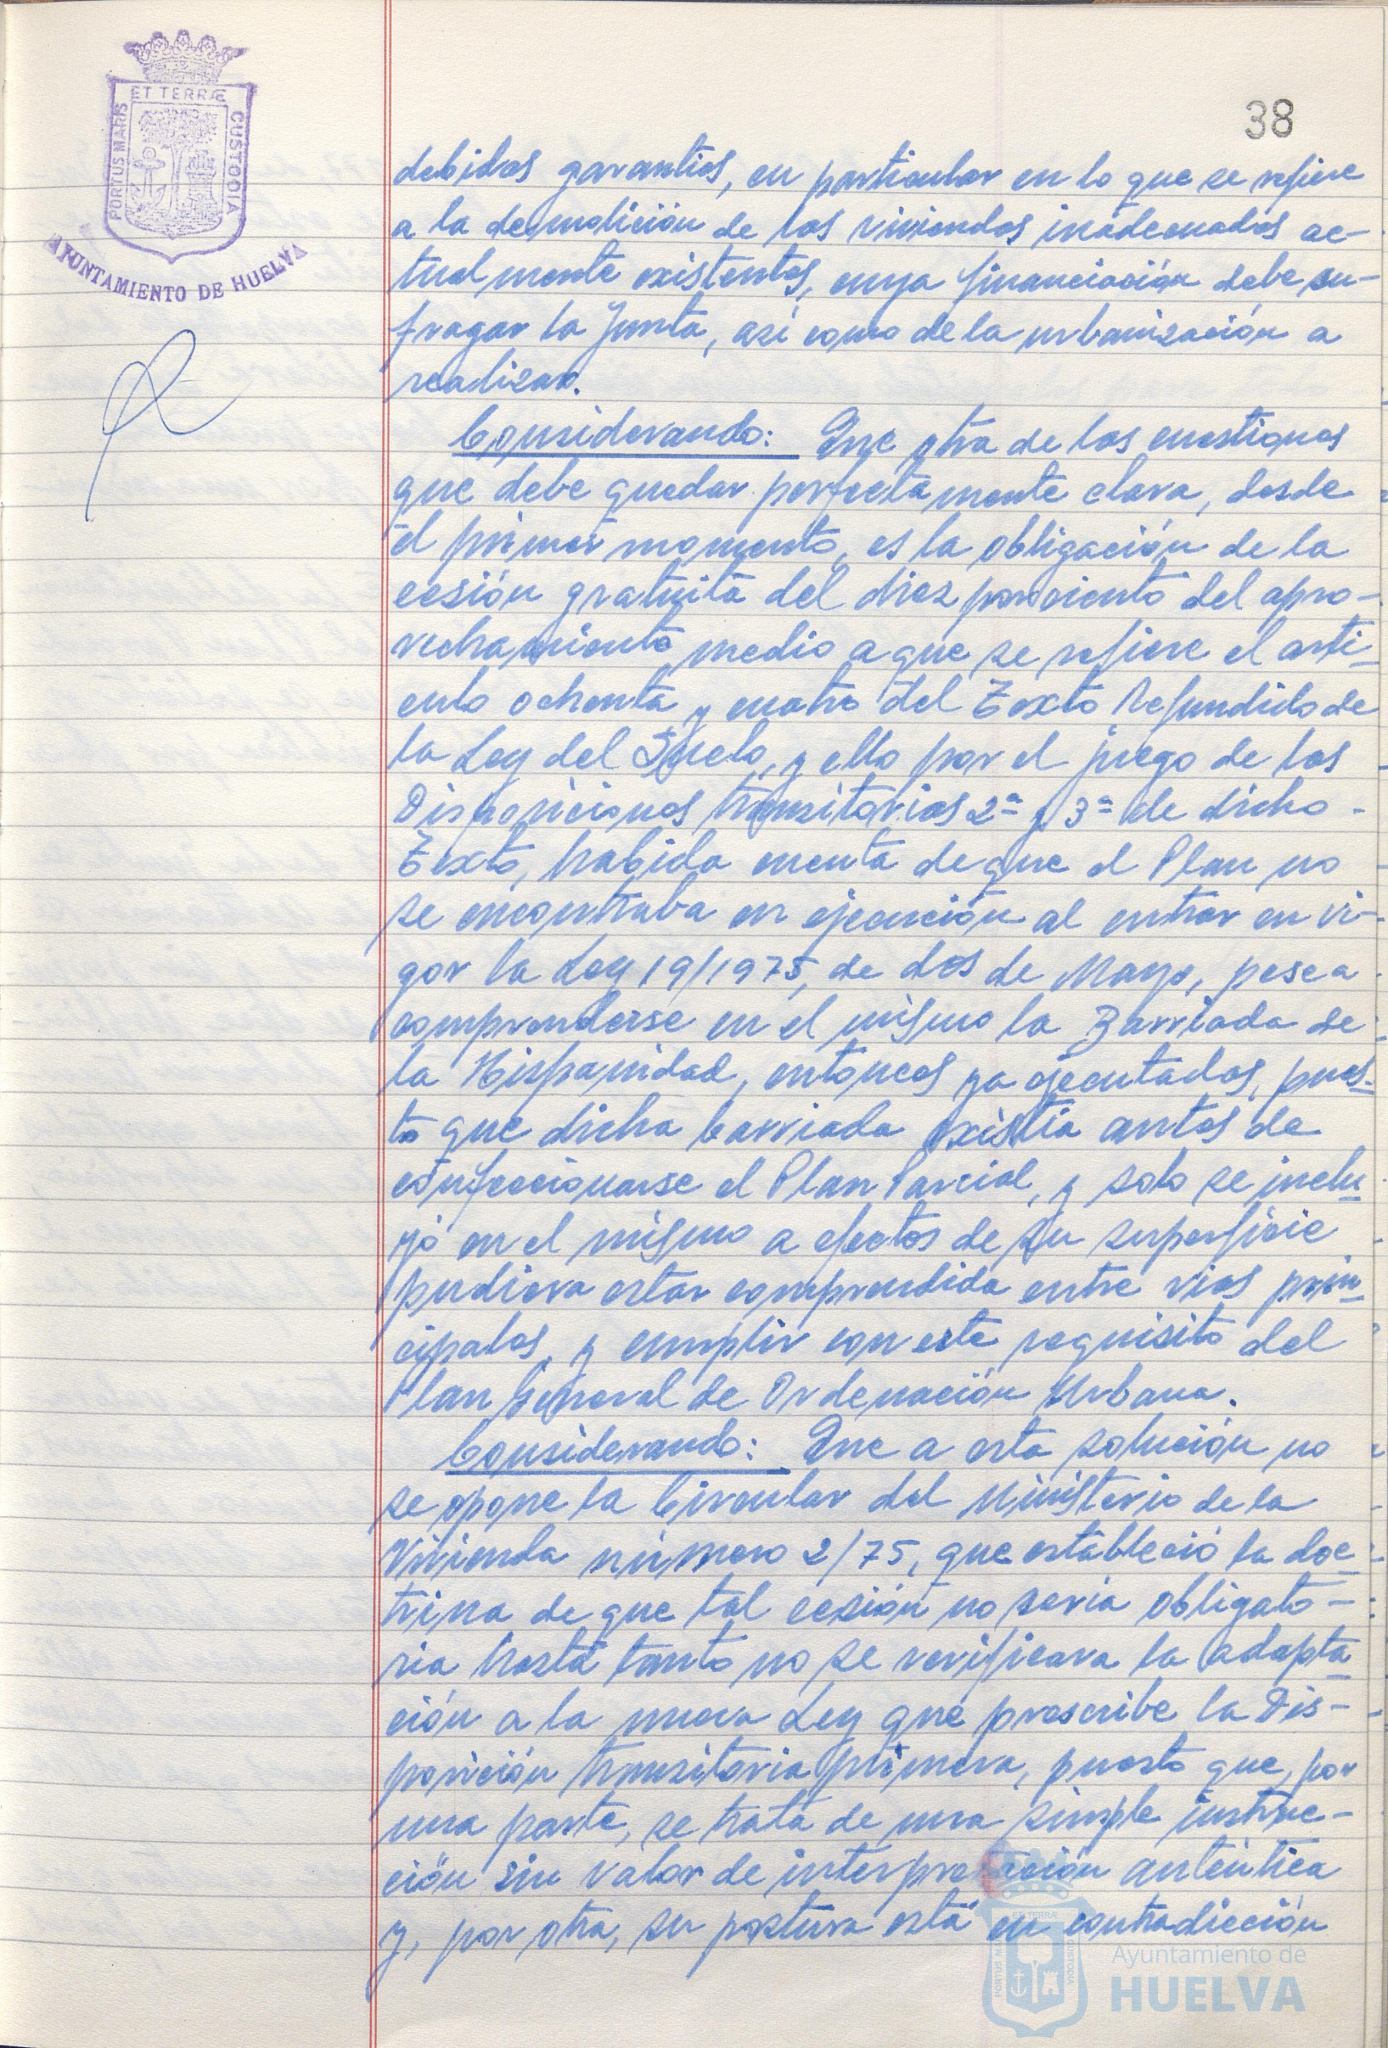 ET TERRÆ
PORTUS MARIS
CUSTODIA
AYUNTAMIENTO DE HUELVA
38
debidas garantías, en particular en lo que se refiere
a la demolición de las viviendas inadecuadas ac-
tualmente existentes, cuya financiación debe su-
fragar la Junta, así como de la urbanización a
realizar.
Considerando: Que otra de las cuestiones
que debe quedar perfectamente clara, desde
el primer momento, es la obligación de la
cesión gratuita del diez por ciento del apro-
vechamiento medio a que se refiere el artí-
culo ochenta y cuatro del Texto Refundido de
la Ley del Suelo, y ello por el juego de las
Disposiciones transitorias 2ª y 3ª de dicho
Texto, habida cuenta de que el Plan no
se encontraba en ejecución al entrar en vi-
gor la Ley 19/1975, de dos de Mayo, pese a
comprenderse en el mismo la Barriada de
la Hispanidad, entonces ya ejecutadas, pues-
to que dicha barriada existía antes de
confeccionarse el Plan Parcial, y solo se inclu-
yó en el mismo a efectos de su superficie
pudiera estar comprendida entre vías prin-
cipales, y cumplir con este requisito del
Plan General de Ordenación Urbana.
Considerando: Que a esta solución no
se opone la Circular del Ministerio de la
Vivienda número 2/75, que estableció la doc-
trina de que tal cesión no sería obligato-
ria hasta tanto no se verificara la adapta-
ción a la nueva Ley que prescribe la Dis-
posición transitoria primera, puesto que, por
una parte, se trata de una simple instruc-
ción sin valor de interpretación auténtica
y, por otra, su postura está en contradicción
Ayuntamiento de
HUELVA